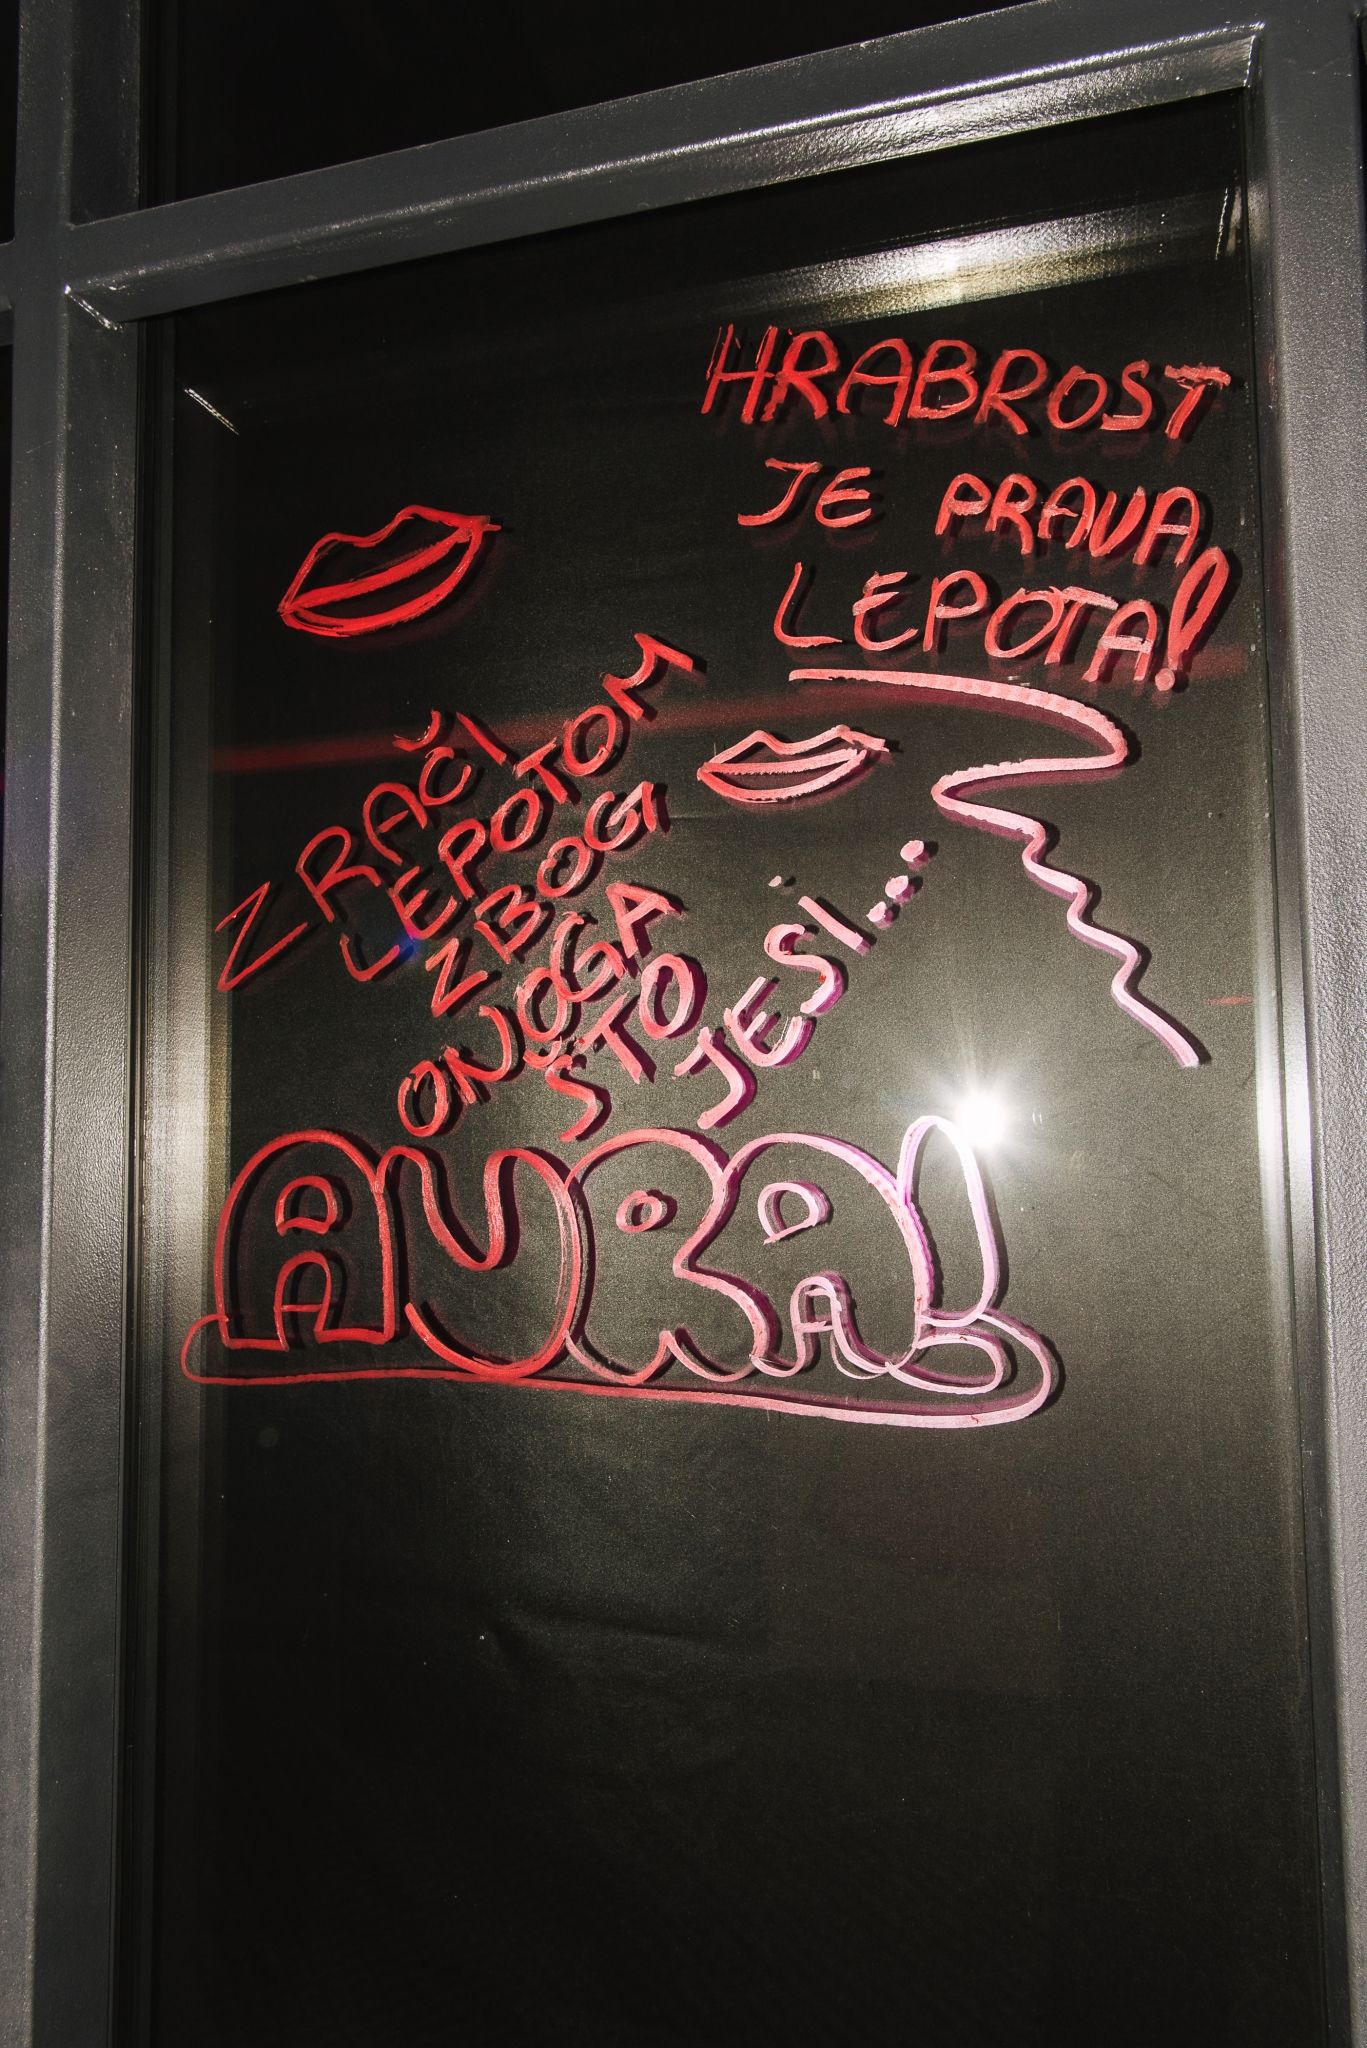 HRABROST
JE PRAVA
LEPOTA!
ZRAČI
LEPOTOM
ZBOG
ONOGA
ŠTO
JESI...
AURA!